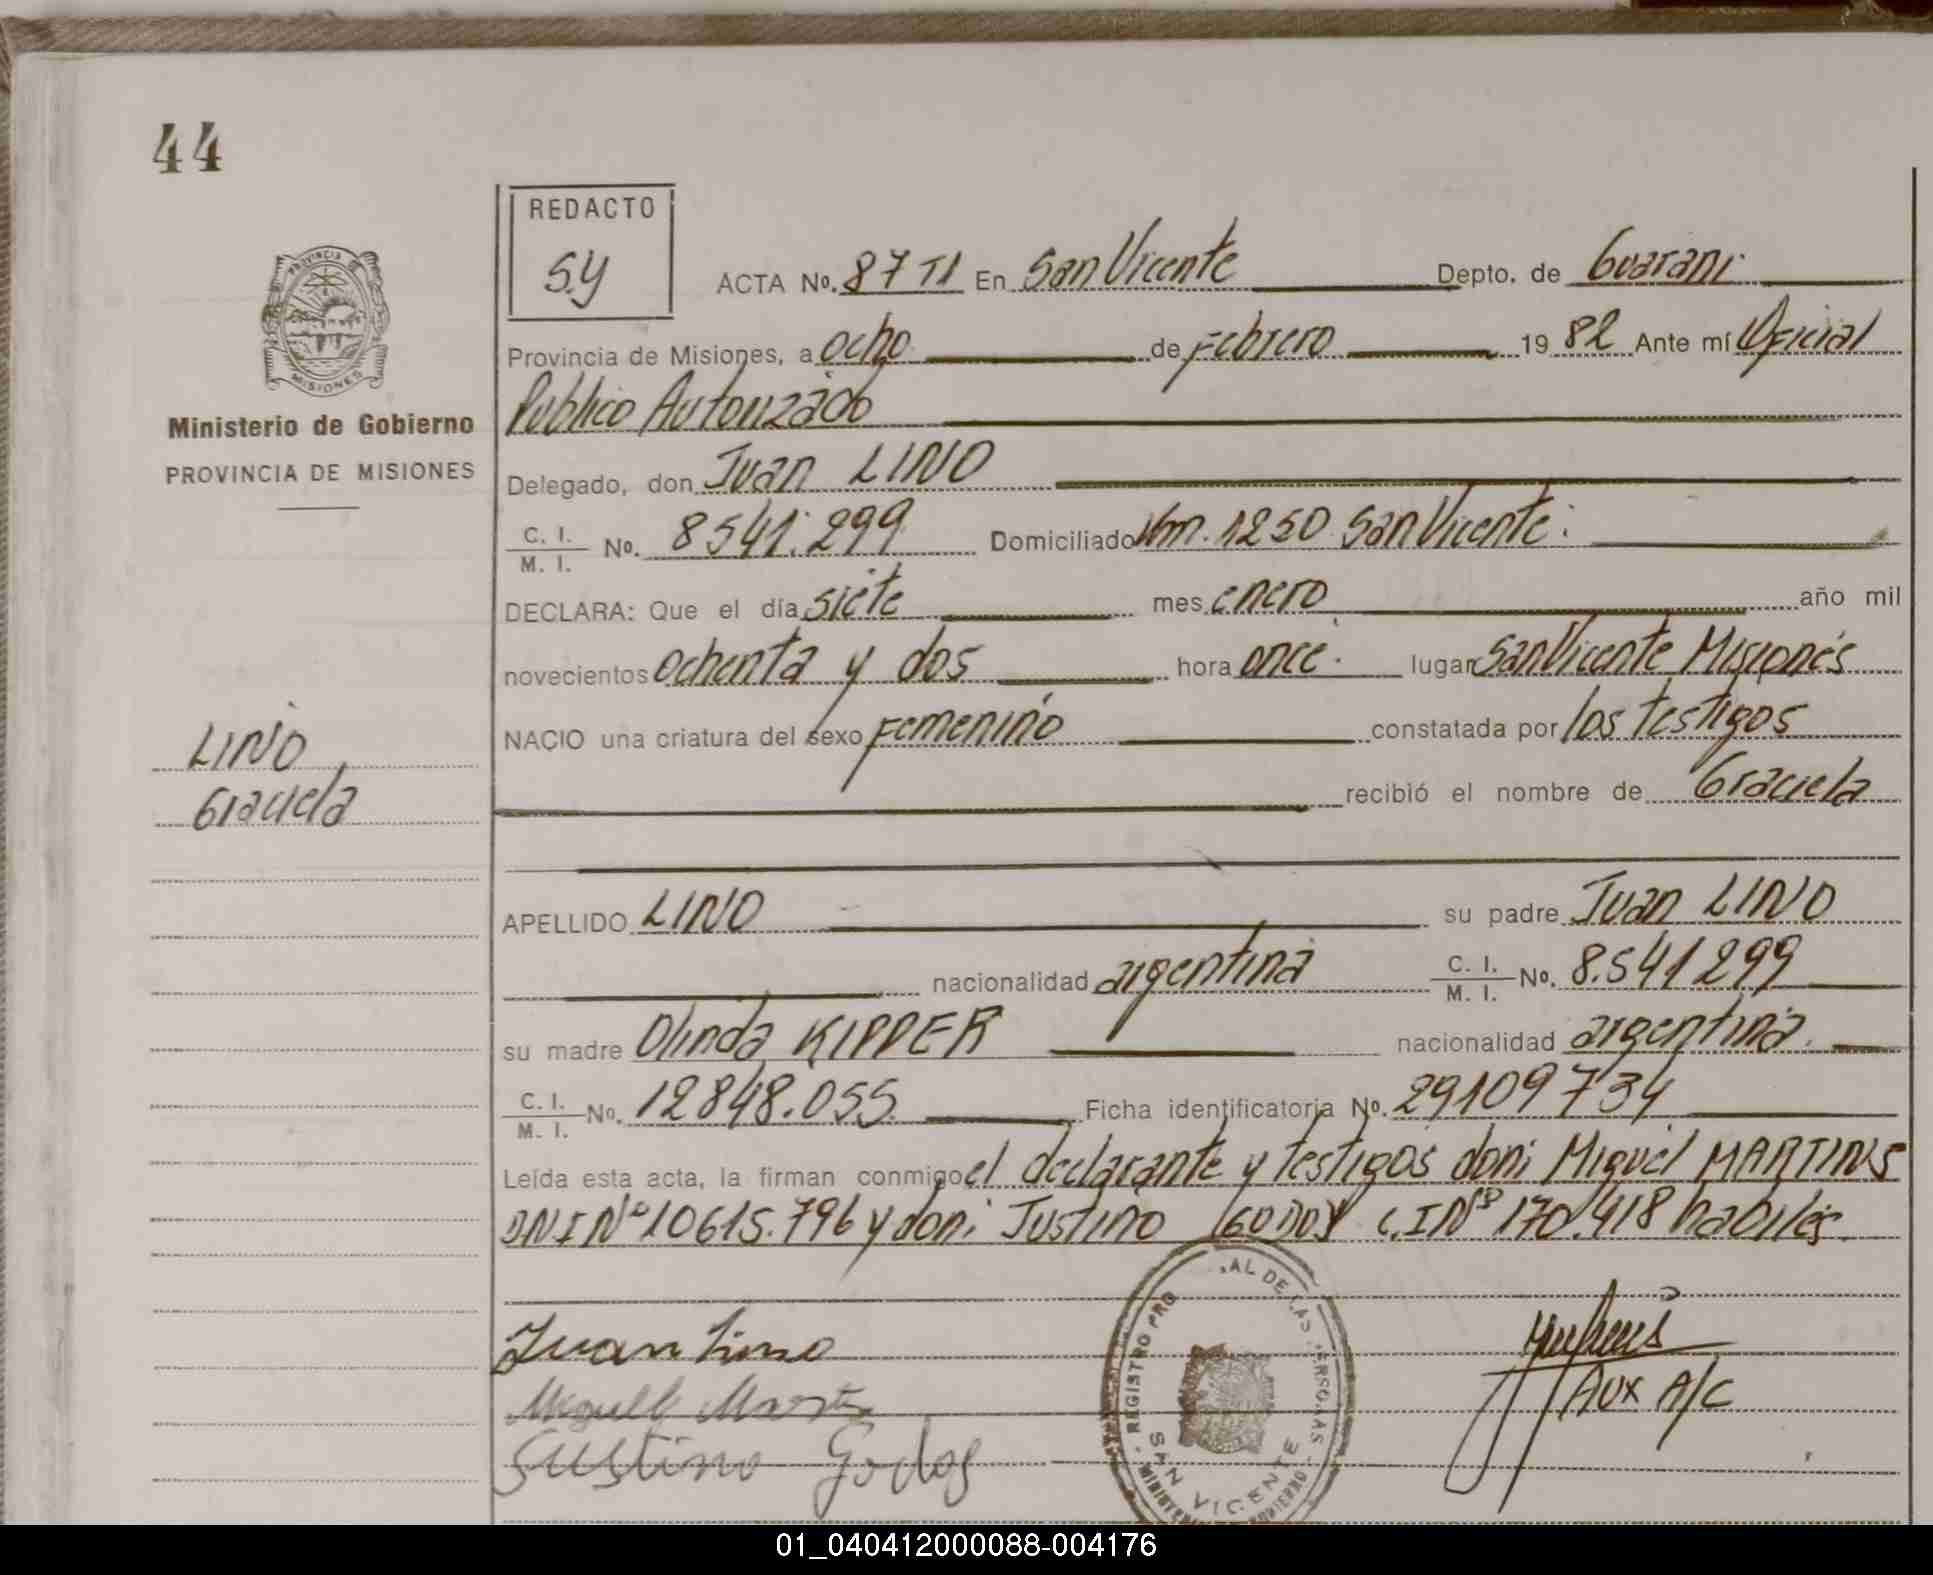 44
REDACTO
S.y
ACTA No. 87 TI En San Vicente Depto. de Guarani
Provincia de Misiones, a ocho de Febrero 1982 Ante mí Oficial
Publico Autorizado
Ministerio de Gobierno
PROVINCIA DE MISIONES
Delegado, don Juan LINO
C. I. / M. I. No. 8541.299 Domiciliado Km. 1250 San Vicente.
DECLARA: Que el día siete mes enero año mil
novecientos ochenta y dos hora once. lugar San Vicente Misiones
NACIO una criatura del sexo Femenino constatada por los testigos
recibió el nombre de Graciela
LINO
Graciela
APELLIDO LINO su padre Juan LINO
nacionalidad argentina C. I. / M. I. No. 8.541299
su madre Olinda KIPPER nacionalidad argentina.
C. I. / M. I. No. 12848.055. Ficha identificatoria No. 29109734
Leída esta acta, la firman conmigo el declarante y testigos don: Miguel MARTINS
DNI Nº 10615.796 y don: Justino GODOY C.I Nº 170.418 habiles.
Juan Lino
Justino Godoy
Aux A/C
REGISTRO PRO AL DE LAS PERSONAS
SAN VICENTE
01_040412000088-004176